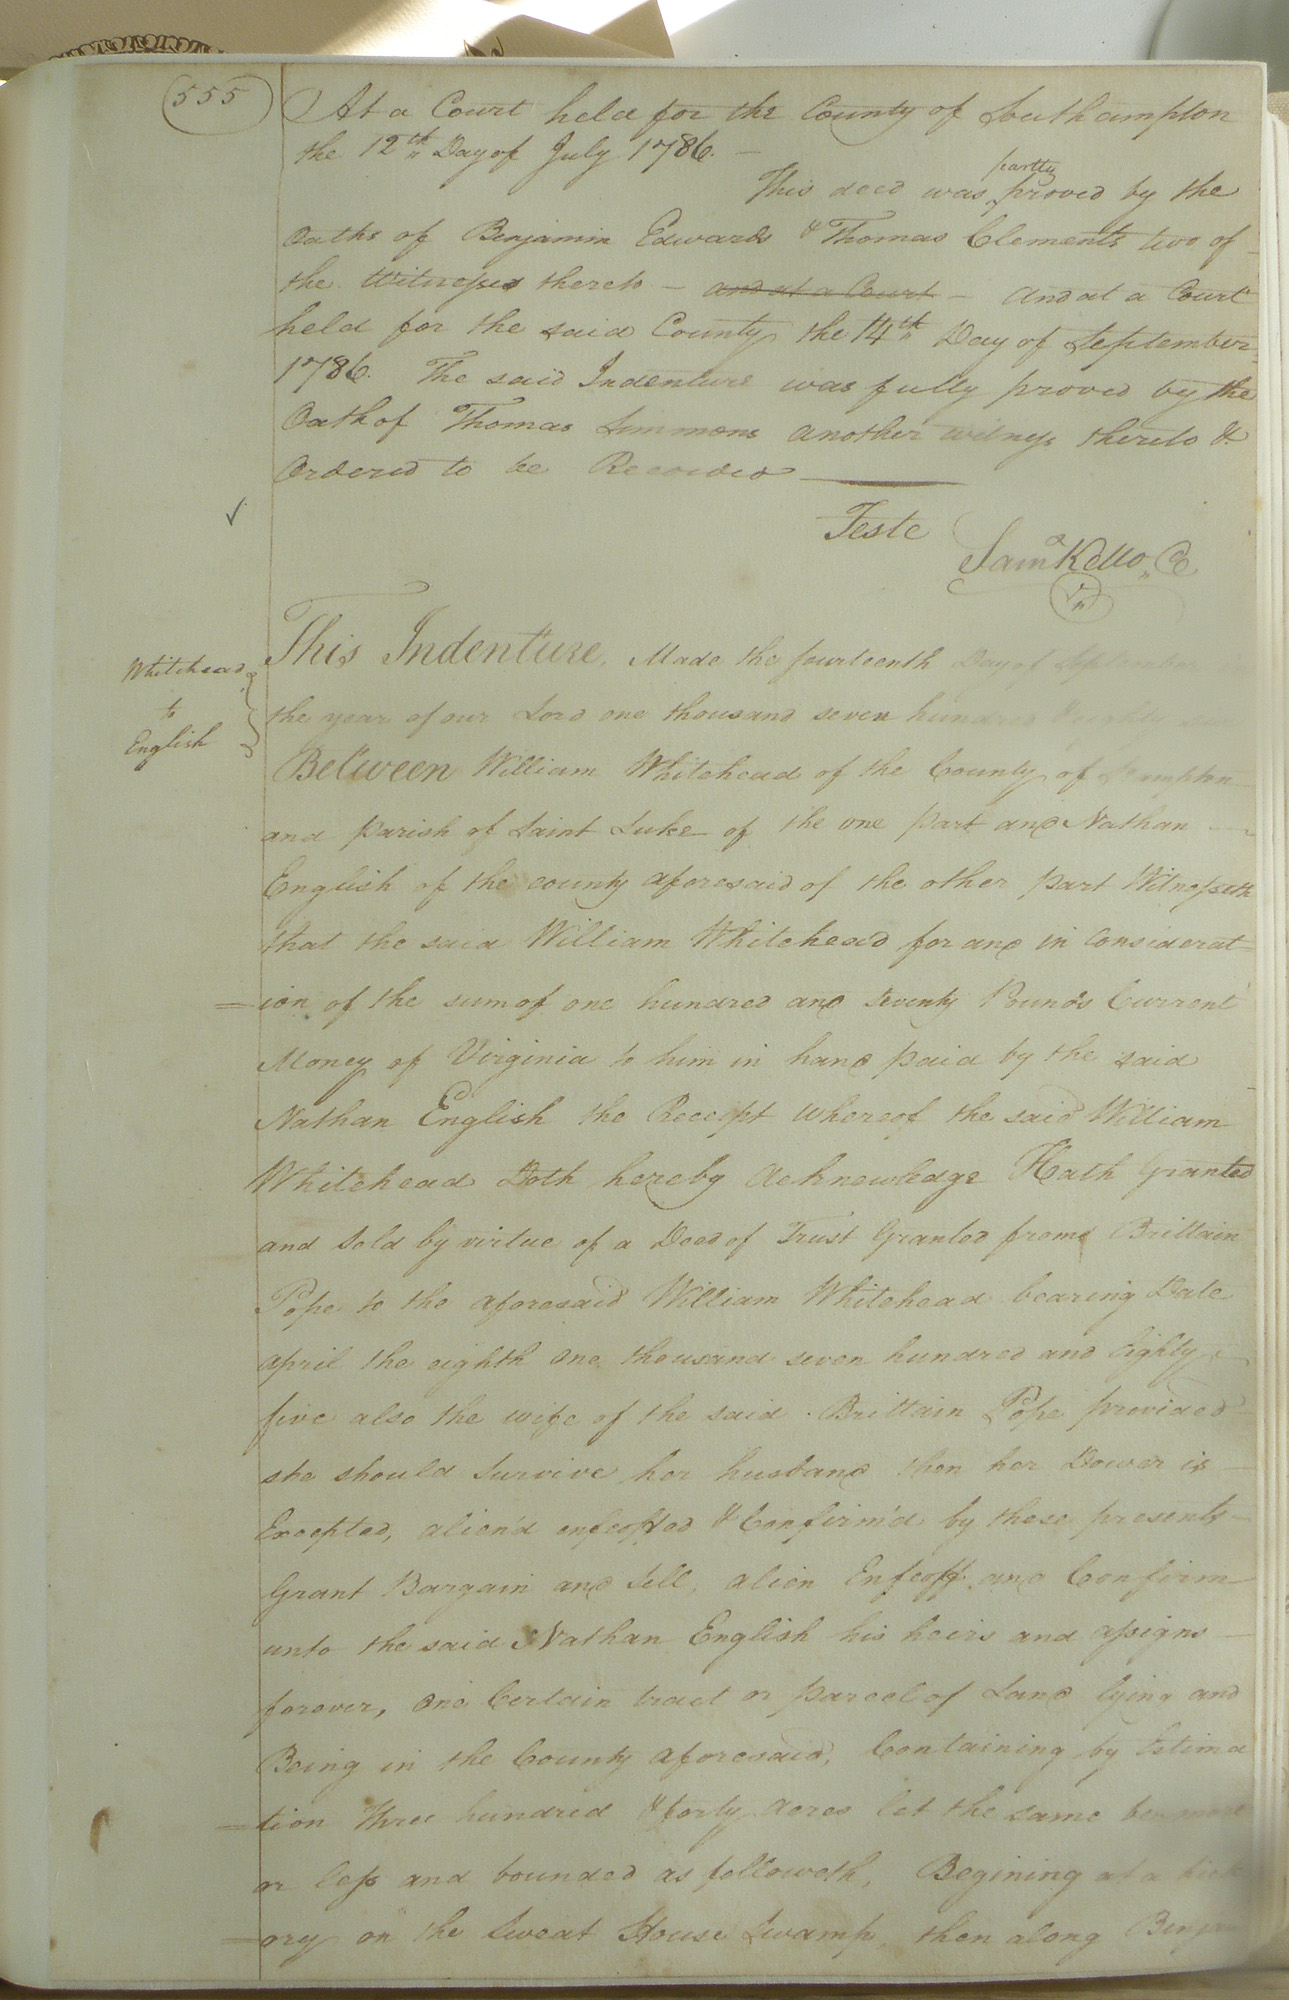 555
At a Court held for the County of Southampton
the 12th Day of July 1786. —
partly
This deed was ^ proved by the
Oaths of Benjamin Edwards & Thomas Clements two of
the Witnesses thereto — and at a Court — And at a Court
held for the said County the 14th Day of September
1786. The said Indenture was fully proved by the
Oath of Thomas Simmons another witness thereto &
Ordered to be Recorded
Teste
Saml Kello, C
Whitehead
to
English
This Indenture, Made the fourteenth Day of September
the year of our Lord one thousand seven hundred & eighty
Between William Whitehead of the County of Sampton
and parish of Saint Luke of the one part and Nathan
English of the county aforesaid of the other part Witnesseth
that the said William Whitehead for and in Considerat-
=ion of the sum of one hundred and seventy Pounds Current
Money of Virginia to him in hand paid by the said
Nathan English the Receipt whereof the said William
Whitehead Doth hereby Acknowledge Hath Granted
and Sold by virtue of a Deed of Trust Granted from Brittain
Pope to the aforesaid William Whitehead bearing Date
April the eighth One thousand seven hundred and Eighty
five also the wife of the said Brittain Pope provided
she should Survive her husband then her Dower is
Excepted, alien'd enfeoffed & Confirm'd by these presents
Grant Bargain and Sell, alien Enfeoff and Confirm
unto the said Nathan English his heirs and assigns
forever, One Certain tract or parcel of Land lying and
Being in the County aforesaid, Containing by Estima
=tion Three hundred & forty Acres let the same be more
or less and bounded as followeth, Begining at a hick
=ory on the Sweat House Swamp, then along